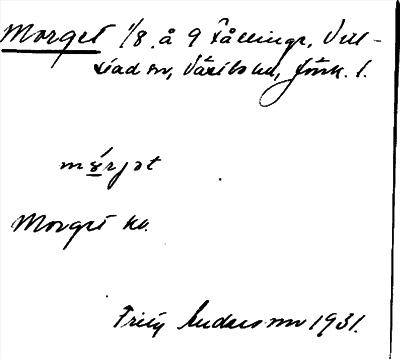 Morget 1/8 å 9 Tållinge, Vill-
stad sn, Västbo hd, Jönk. l.
mɤ́rjət
Morget ko.
Fritz Anderson 1931.